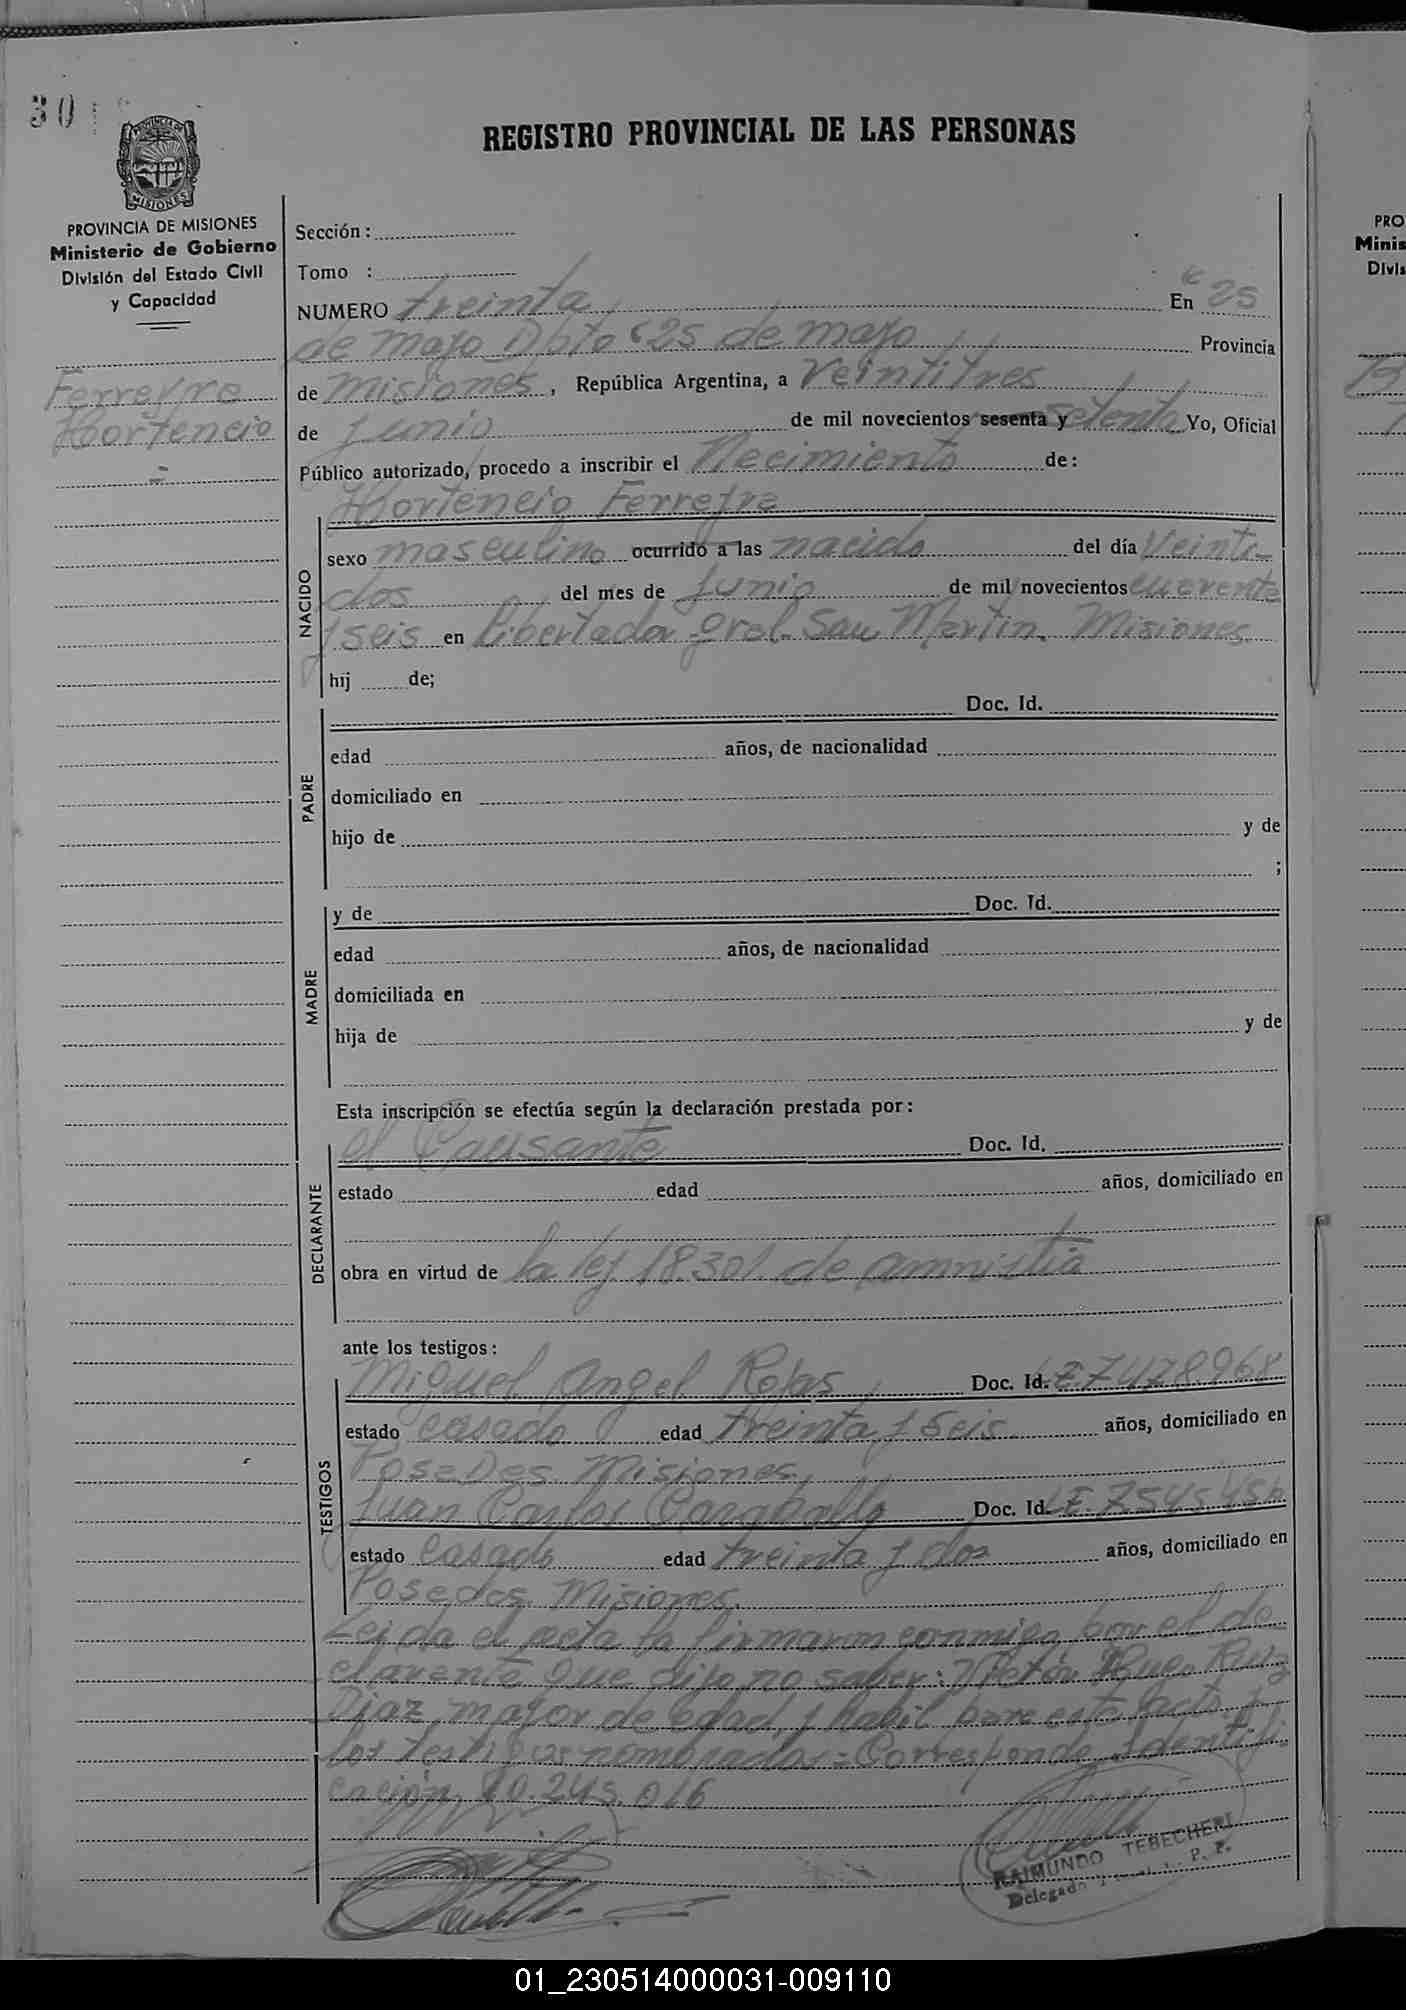 30
REGISTRO PROVINCIAL DE LAS PERSONAS
PROVINCIA DE MISIONES
MISIONES
PROVINCIA DE MISIONES
Ministerio de Gobierno
División del Estado Civil
y Capacidad
Ferreyra
Hortencio
Sección:
Tomo :
NUMERO treinta En "25
de mayo Dpto "25 de mayo Provincia
de Misiones, República Argentina, a Veintitres
de Junio de mil novecientos sesenta y setenta Yo, Oficial
Público autorizado, procedo a inscribir el Nacimiento de:
Hortencio Ferreyra
NACIDO
sexo masculino ocurrido a las nacido del día Veinti-
dos del mes de Junio de mil novecientos cuarenta
y seis en Libertador Gral. San Martin. Misiones
hij de;
PADRE
Doc. Id.
edad años, de nacionalidad
domiciliado en
hijo de y de
;
MADRE
y de Doc. Id.
edad años, de nacionalidad
domiciliada en
hija de y de
Esta inscripción se efectúa según la declaración prestada por:
DECLARANTE
el Causante Doc. Id.
estado edad años, domiciliado en
obra en virtud de la ley 18.301. de amnistia
ante los testigos:
TESTIGOS
Miguel Angel Rojas, Doc. Id. LE. 7478968
estado casado edad treinta y Seis. años, domiciliado en
Posadas Misiones,
Juan Carlos Caraballo Doc. Id. LE. 7.545.456
estado Casado edad treinta y dos años, domiciliado en
Posadas Misiones.
Leida el acta la firmaron conmigo por el de
clarante que dijo no saber: Hugo Ruiz
Diaz mayor de edad y habil para este acto y
los testigos nombrados = Corresponde Identifi
cación 10.245.016
RAIMUNDO TEBECHERI
Delegado R. P. P.
PRO
Minis
Divis
01_230514000031-009110